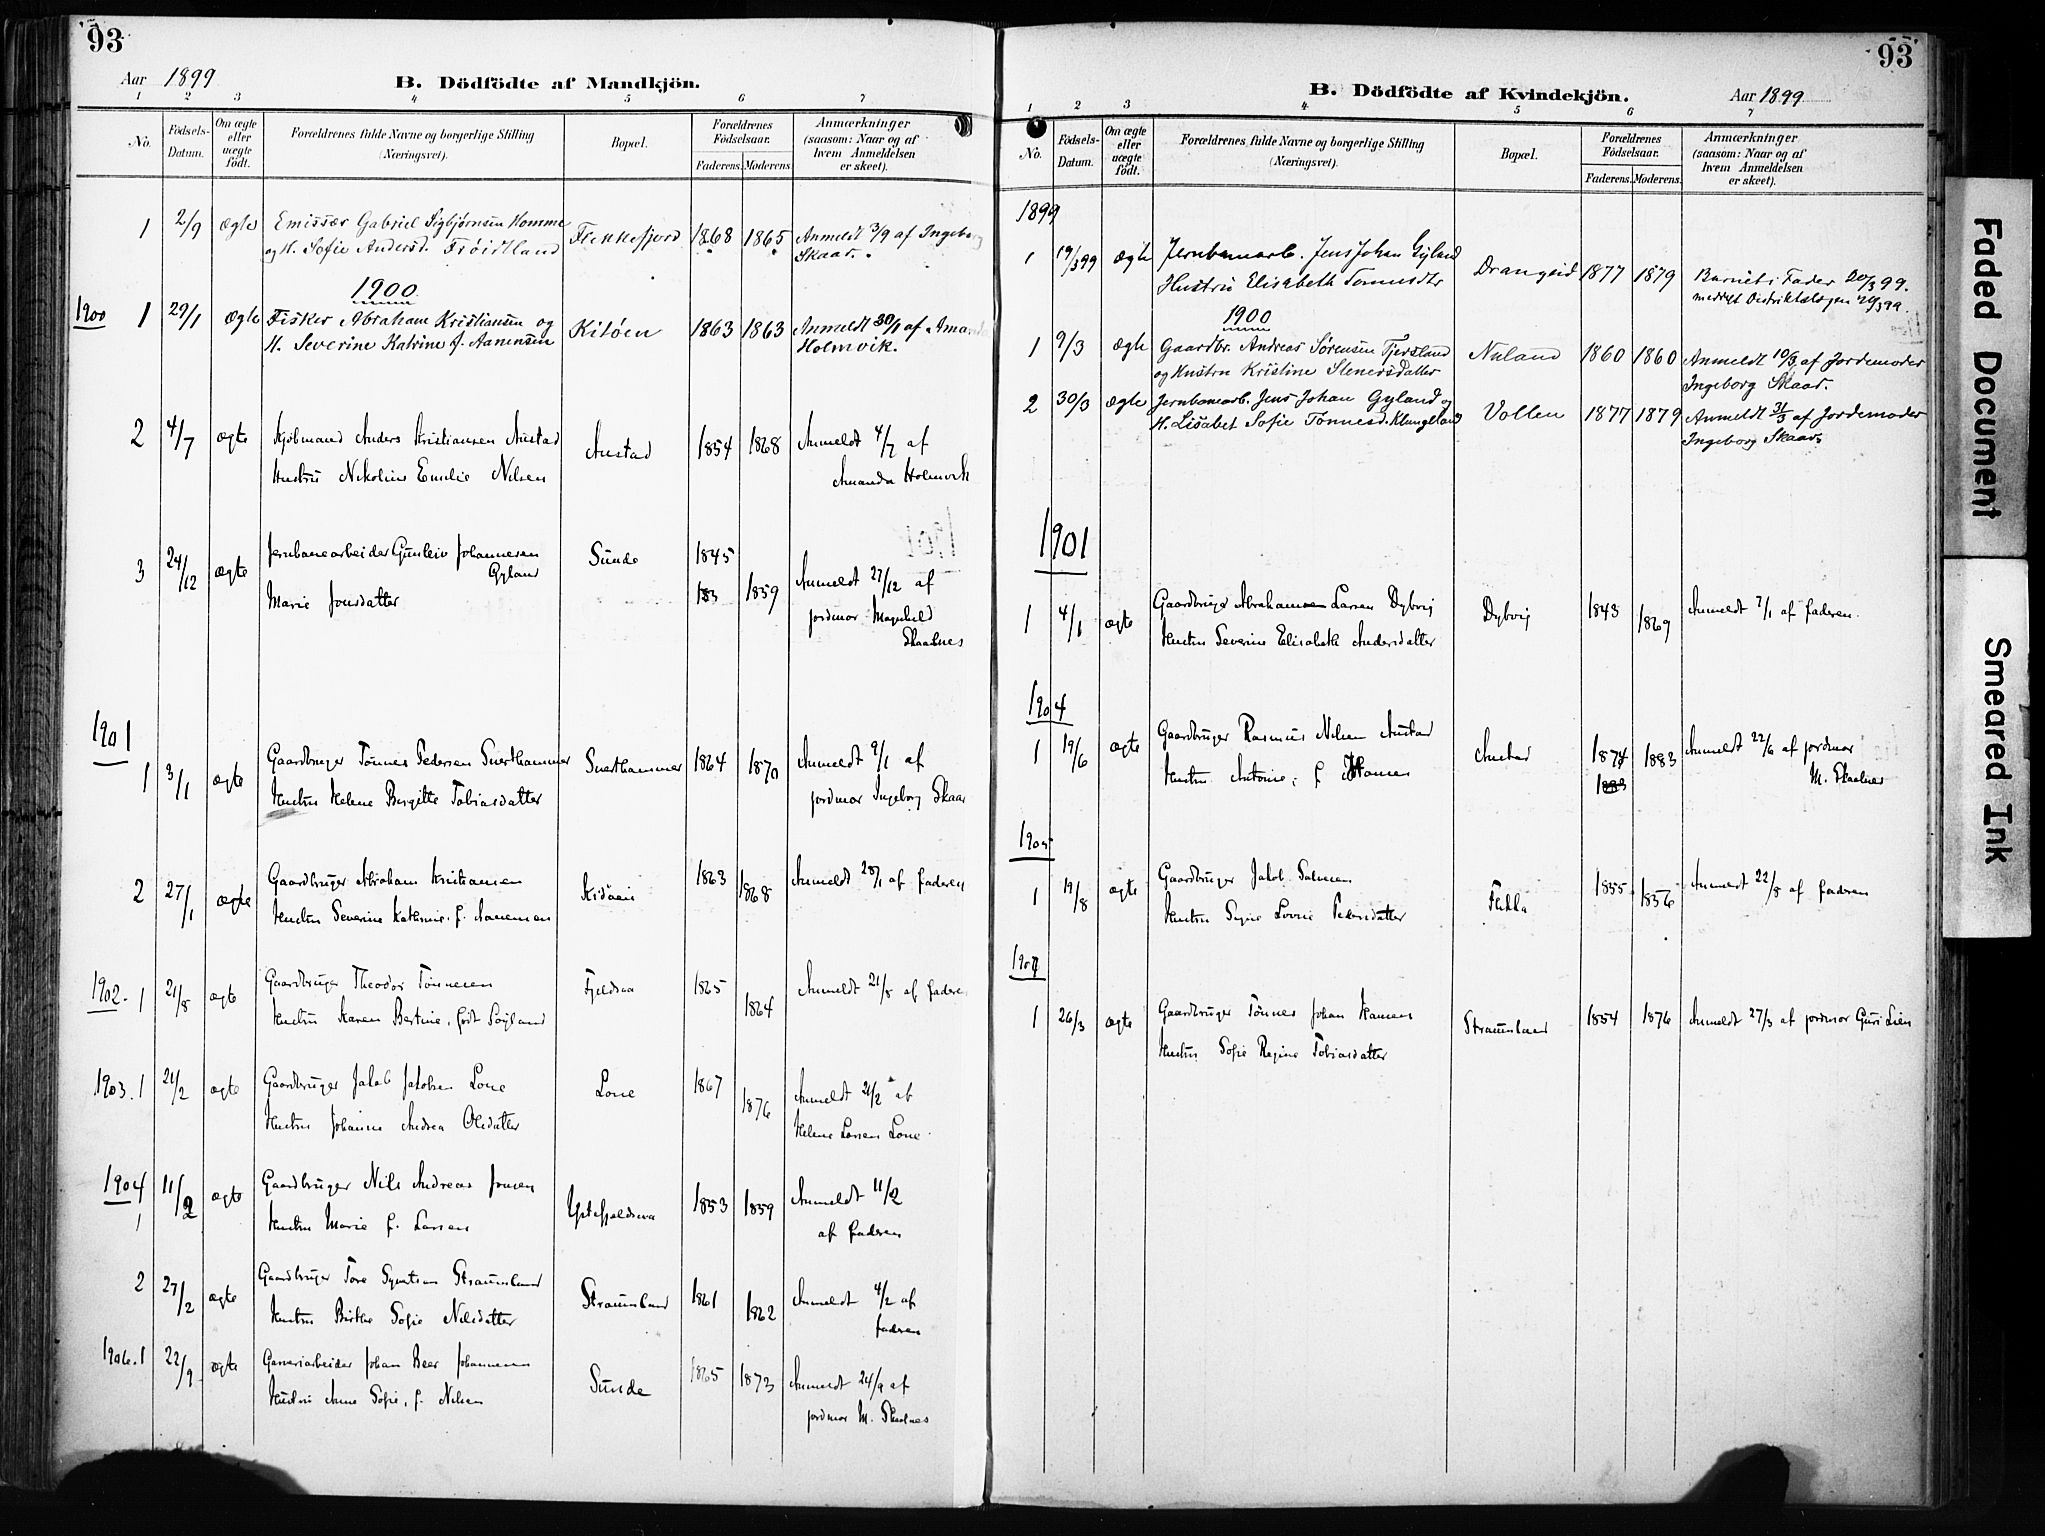 93
Aar 1899
B. Dödfödte af Mandkjön.
1 2 3 4 5 6 7
No.
Födsels-Datum.
Om ægte eller uægte födt.
Forældrenes fulde Navne og borgerlige Stilling (Næringsvei).
Bopæl.
Forældrenes Födselsaar.
Faderens. Moderens.
Anmærkninger (saasom: Naar og af hvem Anmeldelsen er skeet).
1 2/9 ægte Emissær Gabriel Sigbjørnsen Homme Flekkefjord 1868 1865 Anmeldt 3/9 af Ingeborg
og H. Sofie Andersd. Frøidtland Skaar.
1900
1900 1 29/1 ægte Fisker Abraham Kristiansen og Kitöen 1863 1863 Anmeldt 30/1 af Amanda
H. Severine Katrine f. Aanensen Holmvik.
2 4/7 ægte Kjöbmand Anders Kristiansen Austad Austad 1854 1868 Anmeldt 4/7 af
Hustru Nikoline Emilie Nilsen Amanda Holmvik
3 24/12 ægte Jernbanearbeider Gunleiv Johannesen Sunde 1845
Gyland
Marie Jonsdatter 1859 Anmeldt 27/12 af
jordmor Magnhild
Skaalnes
1901
1 3/1 ægte Gaardbruger Tönnes Pedersen Sverthammer Svarthammer 1864 1870 Anmeldt 9/1 af
Hustru Helene Bergitte Tobiasdatter jordmor Ingeborg Skaar
2 27/1 ægte Gaardbruger Abraham Kristiansen Kidöen 1863 1868 Anmeldt 28/1 af faderen
Hustru Severine Kathrine f. Aanensen
1902. 1 21/8 ægte Gaardbruger Theodor Tönnesen Fjeldsaa 1865 1864 Anmeldt 21/8 af faderen
Hustru Karen Bertine, født Söyland
1903. 1 21/2 ægte Gaardbruger Jakob Jakobsen Lone Lone 1867 1876 Anmeldt 21/2 af
Hustru Johanne Andrea Olsdatter Helene Larsen Lone.
1904
1 11/2 ægte Gaardbruger Nils Andreas Jonsen 1853 1859 Anmeldt 11/2
Hustru Marie f. Larsen af faderen
2 27/2 ægte Gaardbruger Tore Straumland Straumland 1861 1862 Anmeldt 4/2 af
Hustru Birthe Sofie Nilsdatter faderen
1906. 1 22/9 ægte Garveriarbeider Johan Beer Johannesen Sunde 1865 1873 Anmeldt 24/9 af
Hustru Anne Sofie, f. Nilsen jordmor M. Skalnes
93
B. Dödfödte af Kvindekjön.
Aar 1899
1 2 3 4 5 6 7
No.
Födsels-Datum.
Om ægte eller uægte födt.
Forældrenes fulde Navne og borgerlige Stilling (Næringsvei).
Bopæl.
Forældrenes Födselsaar.
Faderens. Moderens.
Anmærkninger (saasom: Naar og af hvem Anmeldelsen er skeet).
1899
1 19/3 99 ægte Jernbanearb. Jens Johan Gyland Drangeid 1877 1879 Barnets Fader 20/3 99.
Hustru Elisabeth Tonnesdtr
1900
1 9/3 ægte Gaardbr. Andreas Sørensen Fjersland Nuland 1860 1860 Anmeldt 10/3 af Jordemoder
og Hustru Kristine Stenersdatter Ingeborg Skaar.
2 30/3 ægte Jernbanearb. Jens Johan Gyland og Vollen 1877 1879 Anmeldt 31/3 af Jordemoder
H. Lisabet Sofie Tønnesd. Klungeland Ingeborg Skaar
1901
1 4/1 ægte Gaardbruger Abraham Larsen Dybvig Dybvig 1843 1869 Anmeldt 7/1 af faderen.
Hustru Severine Elisabeth Andersdatter
1904
1 19/6 ægte Gaardbruger Rasmus Nilsen Austad Austad 1874 1883 Anmeldt 22/6 af jordmor
Hustru Antonie, f. Hansen 1883 M. Skalnes
1905
1 19/8 ægte Gaardbruger Jakob Salvesen Flikka 1855 1856 Anmeldt 22/8 af faderen
Hustru Signe Lovise Pedersdatter
1907
1 26/3 ægte Gaardbruger Tönnes Johan Hansen Straumland 1854 1876 Anmeldt 27/3 af jordmor Guri Lien
Hustru Sofie Regine Tobiasdatter
Faded Document
Smeared Ink